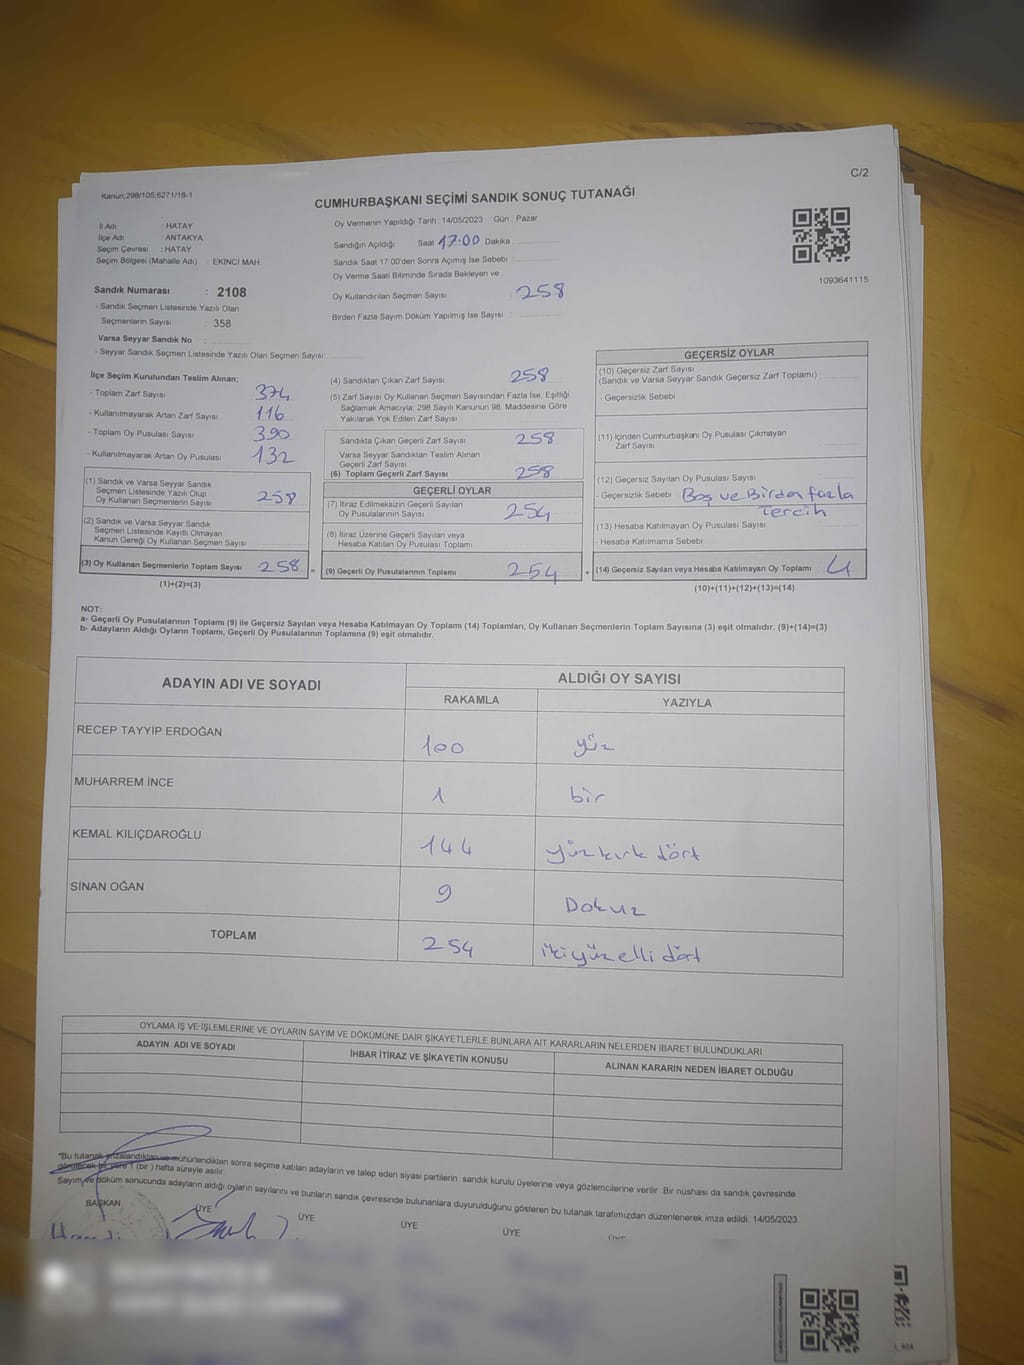 C/2
Kanun;298/105;6271/18-1
CUMHURBAŞKANI SEÇİMİ SANDIK SONUÇ TUTANAĞI
İl Adı : HATAY
İlçe Adı : ANTAKYA
Seçim Çevresi : HATAY
Seçim Bölgesi (Mahalle Adı) : EKİNCİ MAH.
Sandık Numarası : 2108
- Sandık Seçmen Listesinde Yazılı Olan
Seçmenlerin Sayısı : 358
Varsa Seyyar Sandık No :
- Seyyar Sandık Seçmen Listesinde Yazılı Olan Seçmen Sayısı:
Oy Vermenin Yapıldığı Tarih :14/05/2023 Gün : Pazar
Sandığın Açıldığı Saat 17:00 Dakika
Sandık Saat 17:00'den Sonra Açımış İse Sebebi
Oy Verme Saati Bitiminde Sırada Bekleyen ve
Oy Kullandırılan Seçmen Sayısı 258
Birden Fazla Sayım Döküm Yapılmış İse Sayısı :
1093641115
İlçe Seçim Kurulundan Teslim Alınan;
- Toplam Zarf Sayısı 374
- Kullanılmayarak Artan Zarf Sayısı 116
- Toplam Oy Pusulası Sayısı 390
- Kullanılmayarak Artan Oy Pusulası 132
(1) Sandık ve Varsa Seyyar Sandık
Seçmen Listesinde Yazılı Olup
Oy Kullanan Seçmenlerin Sayısı 258
(2) Sandık ve Varsa Seyyar Sandık
Seçmen Listesinde Kayıtlı Olmayan
Kanun Gereği Oy Kullanan Seçmen Sayısı
(3) Oy Kullanan Seçmenlerin Toplam Sayısı 258 =
(1)+(2)=(3)
(4) Sandıktan Çıkan Zarf Sayısı 258
(5) Zarf Sayısı Oy Kullanan Seçmen Sayısından Fazla İse, Eşitliği
Sağlamak Amacıyla; 298 Sayılı Kanunun 98. Maddesine Göre
Yakılarak Yok Edilen Zarf Sayısı
Sandıkta Çıkan Geçerli Zarf Sayısı 258
Varsa Seyyar Sandıktan Teslim Alınan
Geçerli Zarf Sayısı
(6) Toplam Geçerli Zarf Sayısı 258
GEÇERLİ OYLAR
(7) İtiraz Edilmeksizin Geçerli Sayılan
Oy Pusulalarının Sayısı 254
(8) İtiraz Üzerine Geçerli Sayılan veya
Hesaba Katılan Oy Pusulası Toplamı
(9) Geçerli Oy Pusulalarının Toplamı 254 +
GEÇERSİZ OYLAR
(10) Geçersiz Zarf Sayısı
(Sandık ve Varsa Seyyar Sandık Geçersiz Zarf Toplamı)
- Geçersizlik Sebebi
(11) İçinden Cumhurbaşkanı Oy Pusulası Çıkmayan
Zarf Sayısı
(12) Geçersiz Sayılan Oy Pusulası Sayısı
- Geçersizlik Sebebi Boş ve Birden fazla
Tercih
(13) Hesaba Katılmayan Oy Pusulası Sayısı
- Hesaba Katılmama Sebebi
(14) Geçersiz Sayılan veya Hesaba Katılmayan Oy Toplamı 4
(10)+(11)+(12)+(13)=(14)
NOT:
a- Geçerli Oy Pusulalarının Toplamı (9) ile Geçersiz Sayılan veya Hesaba Katılmayan Oy Toplamı (14) Toplamları, Oy Kullanan Seçmenlerin Toplam Sayısına (3) eşit olmalıdır. (9)+(14)=(3)
b- Adayların Aldığı Oyların Toplamı, Geçerli Oy Pusulalarının Toplamına (9) eşit olmalıdır.
ADAYIN ADI VE SOYADI ALDIĞI OY SAYISI
RAKAMLA YAZIYLA
RECEP TAYYİP ERDOĞAN 100 yüz
MUHARREM İNCE 1 bir
KEMAL KILIÇDAROĞLU 144 yüzkırk dört
SİNAN OĞAN 9 Dokuz
TOPLAM 254 ikiyüzelli dört
OYLAMA İŞ VE İŞLEMLERİNE VE OYLARIN SAYIM VE DÖKÜMÜNE DAİR ŞİKAYETLERLE BUNLARA AİT KARARLARIN NELERDEN İBARET BULUNDUKLARI
ADAYIN ADI VE SOYADI İHBAR İTİRAZ VE ŞİKAYETİN KONUSU ALINAN KARARIN NEDEN İBARET OLDUĞU
*Bu tutanak imzalandıktan ve mühürlendikten sonra seçime katılan adayların ve talep eden siyasi partilerin sandık kurulu üyelerine veya gözlemcilerine verilir. Bir nüshası da sandık çevresinde
görülecek bir yere 1 (bir ) hafta süreyle asılır.
Sayım ve döküm sonucunda adayların aldığı oyların sayılarını ve bunların sandık çevresinde bulunanlara duyurulduğunu gösteren bu tutanak tarafımızdan düzenlenerek imza edildi. 14/05/2023
BAŞKAN ÜYE ÜYE ÜYE ÜYE